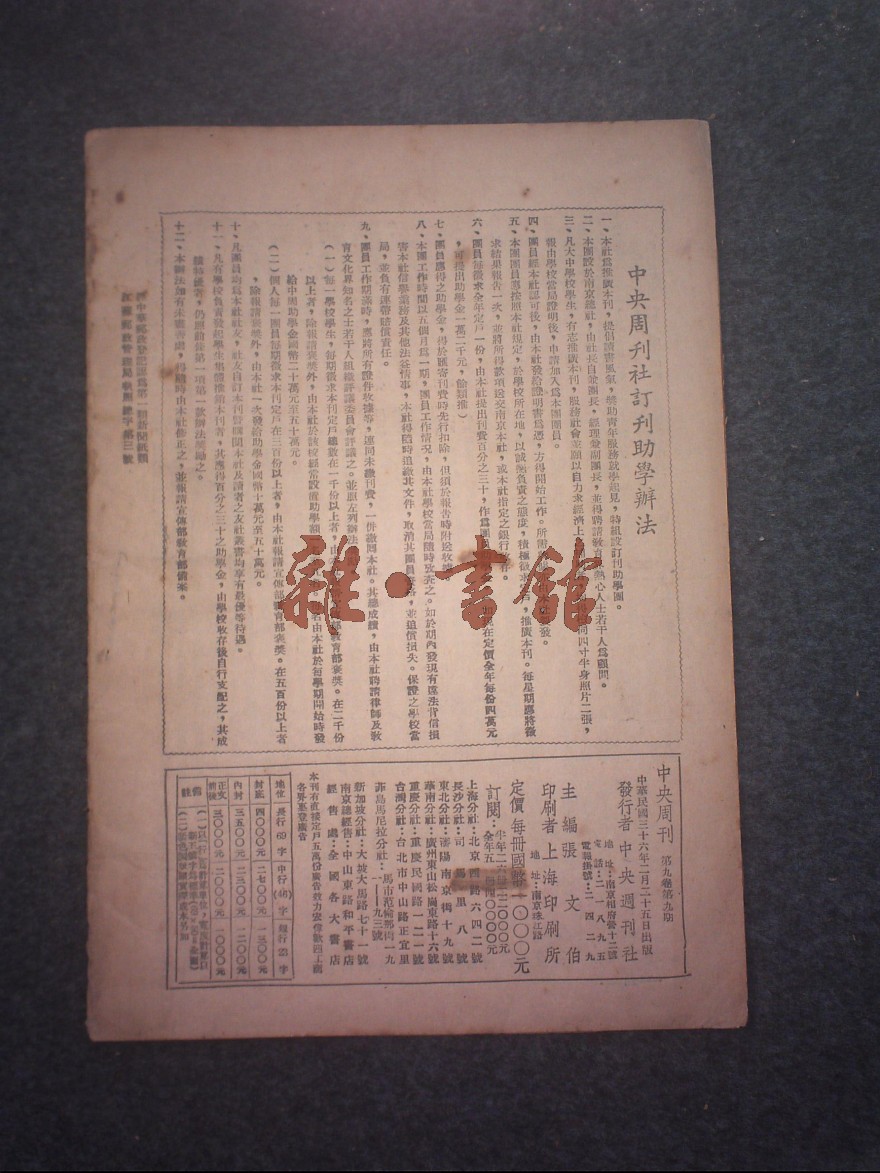 中央周刊社訂刊助學辦法
一、本社為推廣本刊，提倡讀書風氣，獎助青年服務就學起見，特組設訂刊助學團。
二、本團設於南京總社，由社長自兼團長，經理兼副團長，並得聘請教育界熱心人士若干人為顧問。
三、凡大中學校學生，有志推廣本刊，服務社會並願以自力求經濟上
同四寸半身照片二張，
報由學校當局證明後，申請加入為本團團員。
四、團員經本社認可後，由本社發給證明書為憑，方得開始工作。所需
五、本團團員應按照本社規定，於學校所在地，以誠懇負責之態度，積極徵求
推廣本刊。每星期應將徵
求結果報告一次，並將所得款項送交南京本社，或本社指定之銀行
六、團員每徵求全年定戶一份，由本社提出刊費百分之三十，作為團員
現在定價全年每份四萬元
，可提出助學金一萬二千元，餘類推）
七、團員應得之助學金，得於匯寄刊費時先行扣除，但須於報告時附送收據
八、本團工作時間以五個月為一期，團員工作情況，由本社學校當局隨時攷查之。如於期內發現有違法背信損
害本社信譽業務及其他法益情事，本社得隨時追繳其文件，取消其團員資格，並追償損失。保證之學校當
局，並負有連帶賠償責任。
九、團員工作期滿時，應將所有證件收據等，連同未繳刊費，一併繳回本社。其總成績，由本社聘請律師及教
育文化界知名之士若干人組織評議委員會評議之。並照左列辦法
（一）每一學校學生，每期徵求本刊定戶總數在一千份以上者，由
教育部褒獎。在二千份
以上者，除報請褒獎外，由本社於該校設置助學額
名由本社於每學期開始時發
給中周助學金國幣二十萬元至五十萬元。
（二）個人每一團員每期徵求本刊定戶在三百份以上者，由本社報請宣傳部教育部褒獎。在五百份以上者
，除報請褒獎外，由本社一次發給助學金國幣十萬元至五十萬元。
十、凡團員均為本社社友，社友自訂本刊暨購閱本社及讀者之友社叢書均享有最優等待遇。
十一、凡有學校負責發起學生集體推銷本刊者，其應得百分之三十之助學金，由學校收存後自行支配之，其成
績特優者，仍照前條第一項第一款辦法獎勵之。
十二、本辦法如有未盡善處，得隨時由本社修正之，並報請宣傳部教育部備案。
中華郵政登記認為第一類新聞紙類
江蘇郵政管理局執照 總字第三號
中央周刊 第九卷第九期
中華民國三十六年二月二十五日出版
發行者 中央週刊社
地址：南京相府營十二號
電話：二一八九五
電報掛號：二四二九
主編 張文伯
印刷者 上海印刷所
地址：南京珠江路
定價 每冊國幣一〇〇〇元
訂閱：半年二六
全年五
上海分社：北京西路六四二號
長沙分社：司馬里八號
東北分社：瀋陽南京街十九號
華南分社：廣州東山松崗東路十六號
重慶分社：重慶民國路一二一號
台灣分社：台北市中山路正宜里
菲島馬尼拉分社：馬市范倫那街一九一一九三號
新加坡分社：大坡大馬路七十一號
南京總經售：中山東路和平書店
經售處：全國各大書店
本刊有直接定戶五萬份廣告效力宏偉歡迎工商
各界惠登廣告
地位 長行69字 中行(46)字 短行23字
封底 四〇〇〇元 二七〇〇元 一三〇〇元
內封 三五〇〇元 二三〇〇元 一二〇〇元
正文前後 三〇〇〇元 二〇〇〇元 一〇〇〇元
備註
雜·書館